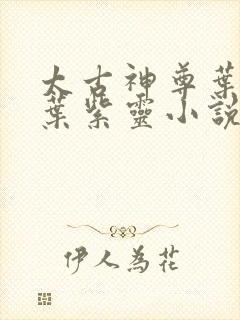 太古神尊葉
葉紫靈小說
伊人為花